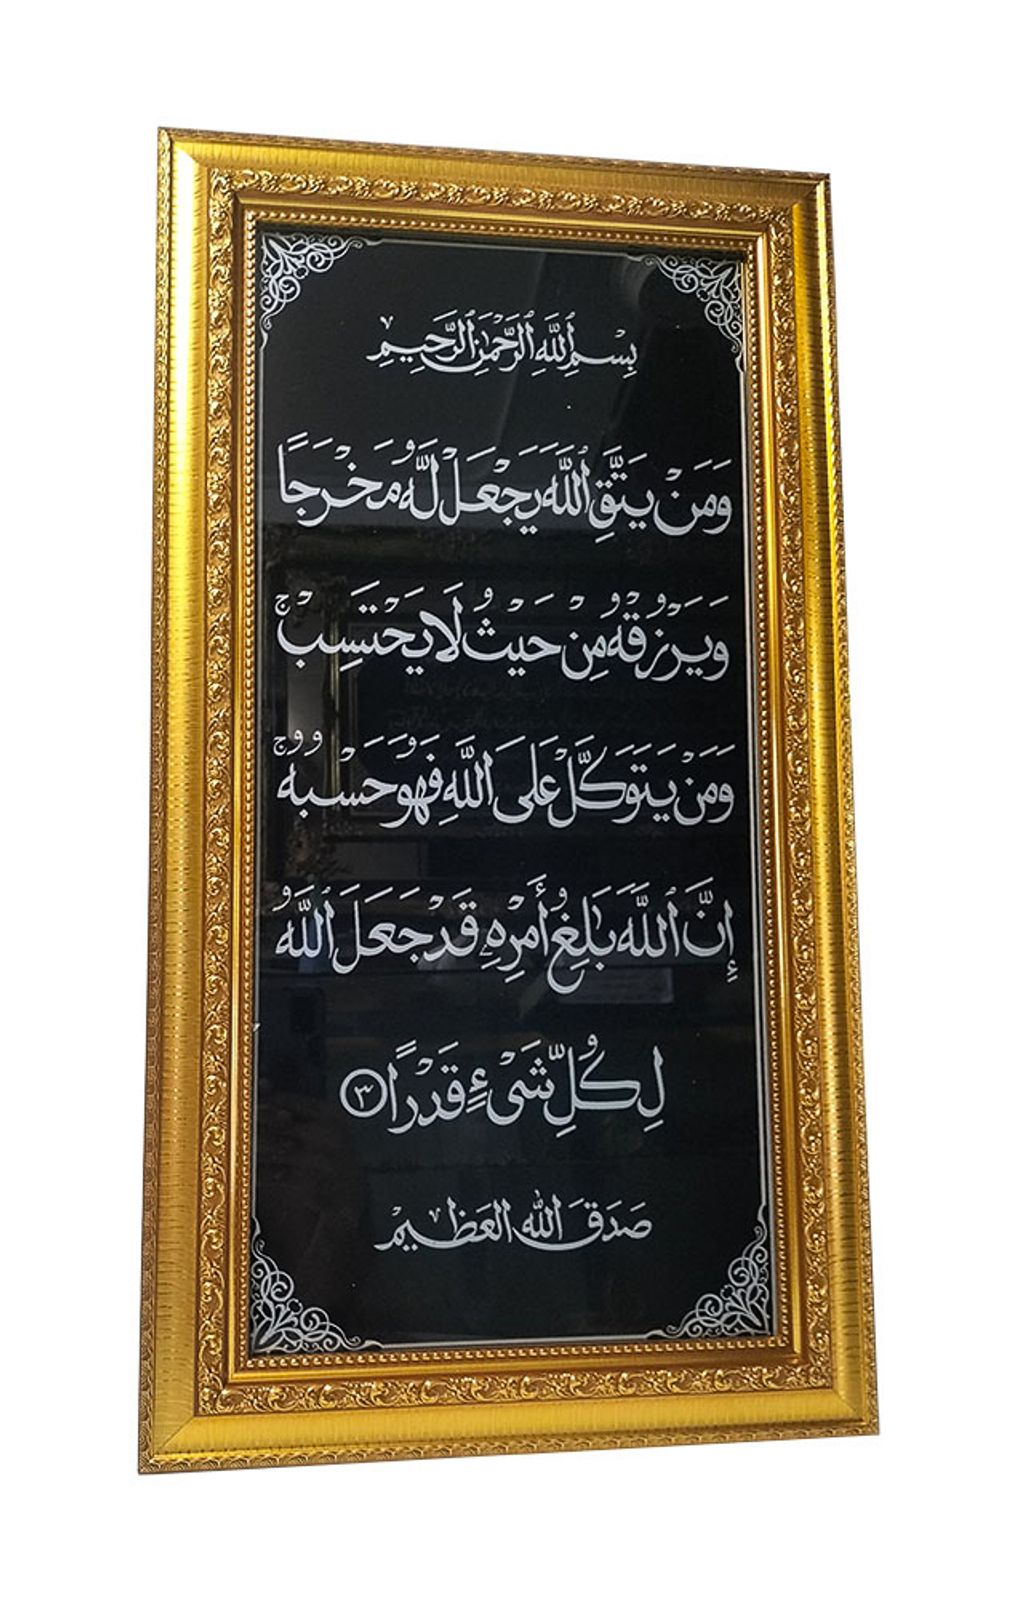 بِسْمِ ٱللَّهِ ٱلرَّحْمَٰنِ ٱلرَّحِيمِ
وَمَنْ يَتَّقِ ٱللَّهَ يَجْعَلْ لَّهُ مَخْرَجًا
وَيَرْزُقْهُ مِنْ حَيْثُ لَا يَحْتَسِبُ ۚ
وَمَنْ يَتَوَكَّلْ عَلَى اللَّهِ فَهُوَ حَسْبُهُ ۚ
إِنَّ ٱللَّهَ بَالِغُ أَمْرِهِ قَدْ جَعَلَ ٱللَّهُ
لِكُلِّ شَىْءٍ قَدْرًا ٣
صَدَقَ اللّٰه العَظِيمْ